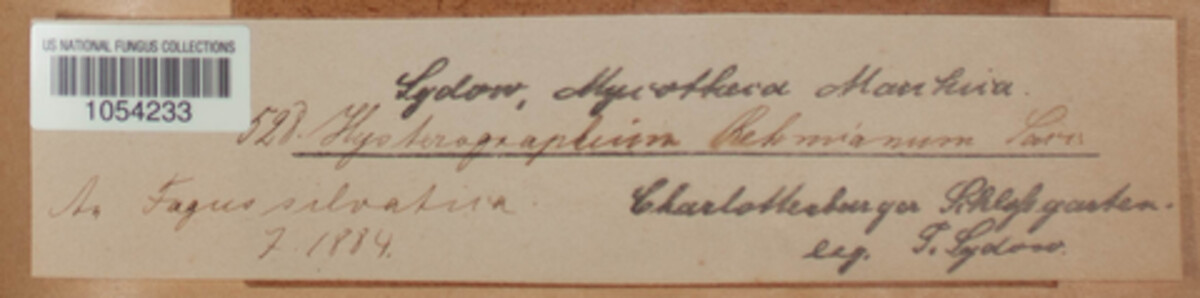 US NATIONAL FUNGUS COLLECTIONS
1054233
Sydow, Mycotheca Marchica.
528. Hysterographium Rehmianum Sacc.
An Fagus silvatica.
7. 1884.
Charlottenburger Schloßgarten.
leg. P. Sydow.